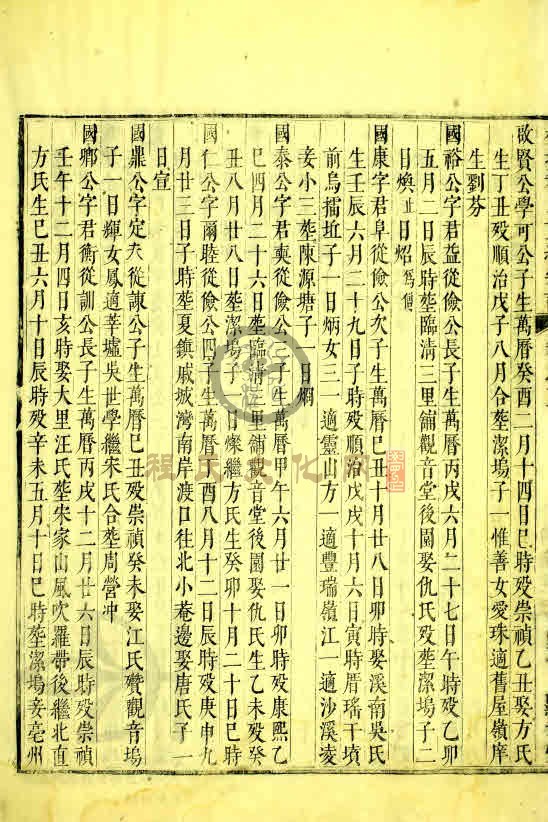 啟賢公學可公子生萬曆癸酉二月十四日巳時殁崇禎乙丑娶方氏
生丁丑殁順治戊子八月合塟潔塢子一惟善女愛珠適舊屋嶺庠
生劉芬
國裕公字君益從儉公長子生萬曆丙戌六月二十七日午時殁乙卯
五月二日辰時塟臨清三里舖觀音堂後園娶仇氏殁塟潔塢子二
日煥止日炤
國康字君阜從儉公次子生萬曆己丑十月廿八日卯時娶溪南吳氏
生壬辰六月二十九日子時殁順治丙戌十月六日寅時厝瑤干墳
前烏擂坵子一日炳女三一適靈山方一適豐瑞嶺江一適沙溪凌
妾小三塟陳源塘子一日烱
國泰公字君奭從儉公三子生萬曆甲午六月廿一日卯時殁康熙乙
巳四月二十六日塟臨清三里舖觀音堂後園娶仇氏生乙未殁癸
丑八月廿八日塟潔塢子一日燦繼方氏生癸卯十月二十日巳時
國仁公字爾睦從儉公四子生萬曆己酉八月十二日辰時殁庚申九
月廿三日子時塟夏鎮戚城灣南岸渡口往北小菴邊娶唐氏子一
日宣
國鼎公字定夫從諫公子生萬曆己丑殁崇禎癸未娶江氏殯觀音塢
子一日輝女鳳適莘墟吳世學繼宋氏合塟周營冲
國卿公字君衡從訓公長子生萬曆丙戌十二月廿六日辰時殁崇禎
壬午十二月四日亥時娶大里汪氏塟宋家山風吹羅帶後繼北直
方氏生己丑六月十日辰時殁辛未五月十日巳時塟潔塢妾亳州
程氏文化网